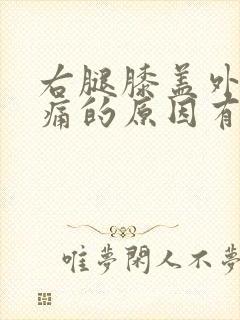 右腿膝盖外
痛的原因有
唯夢閑人不夢